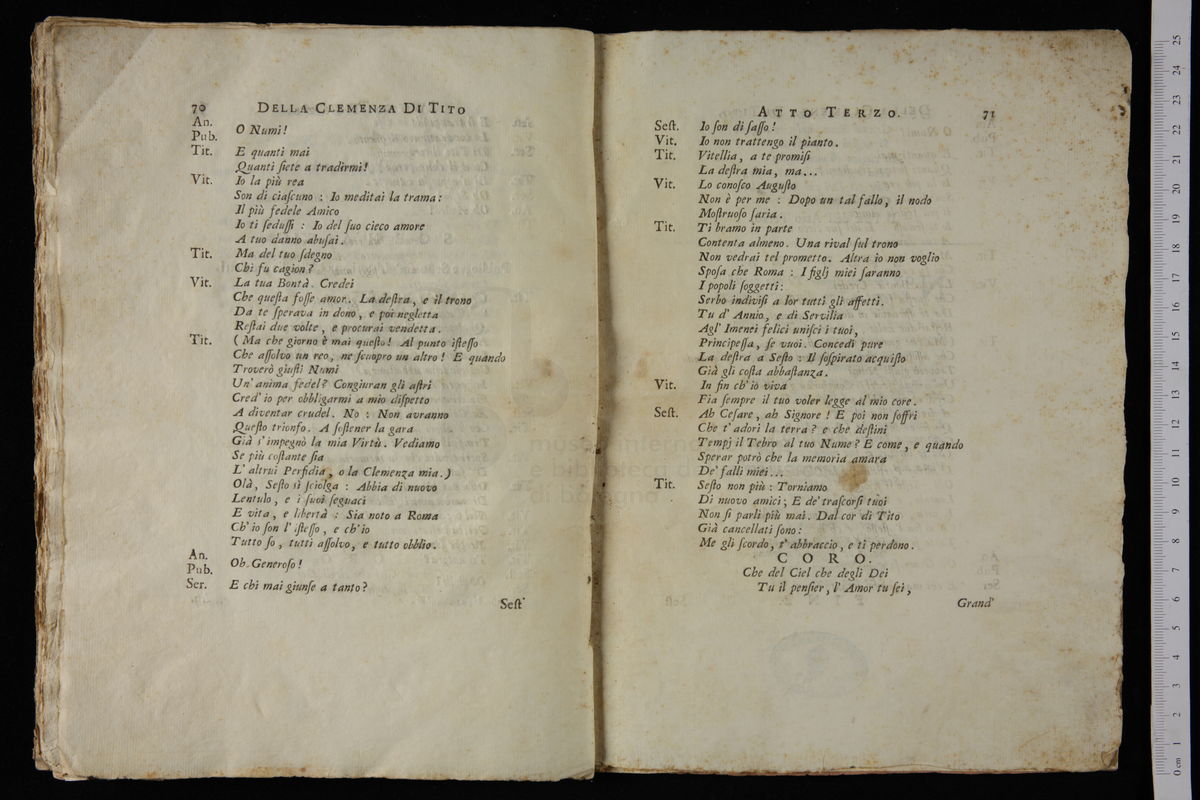 70 DELLA CLEMENZA DI TITO
An.
Pub. O Numi!
Tit. E quanti mai
Quanti ſiete a tradirmi!
Vit. Io la più rea
Son di ciaſcuno : Io meditai la trama:
Il più fedele Amico
Io ti feduſſi : Io del ſuo cieco amore
A tuo danno abuſai.
Tit. Ma del tuo ſdegno
Chi fu cagion?
Vit. La tua Bontà. Credei
Che queſta foſſe amor. La deſtra, e il trono
Da te ſperava in dono, e poi negletta
Reſtai due volte, e procurai vendetta.
Tit. ( Ma che giorno è mai queſto! Al punto iſteſſo
Che aſſolvo un reo, ne ſcuopro un altro! E quando
Troverò giuſti Numi
Un' anima fedel? Congiuran gli aſtri
Cred' io per obbligarmi a mio diſpetto
A diventar crudel. No : Non avranno
Queſto trionfo. A ſoſtener la gara
Già s'impegnò la mia Virtù. Vediamo
Se più coſtante ſia
L' altrui Perfidia, o la Clemenza mia.)
Olà, Seſto ſi ſciolga : Abbia di nuovo
Lentulo, e i ſuoi ſeguaci
E vita, e libertà : Sia noto a Roma
Ch' io ſon l' iſteſſo, e ch' io
Tutto ſo, tutti aſſolvo, e tutto obblio.
An.
Pub. Oh Generoſo!
Ser. E chi mai giunſe a tanto?
Seſt'
ATTO TERZO. 71
Seſt. Io ſon di ſaſſo!
Vit. Io non trattengo il pianto.
Tit. Vitellia, a te promiſi
La deſtra mia, ma...
Vit. Lo conoſco Auguſto
Non è per me : Dopo un tal fallo, il nodo
Moſtruoſo ſaria.
Tit. Ti bramo in parte
Contenta almeno. Una rival ſul trono
Non vedrai tel prometto. Altra io non voglio
Spoſa che Roma : I figlj miei ſaranno
I popoli ſoggetti:
Serbo indiviſi a lor tutti gli affetti.
Tu d' Annio, e di Servilia
Agl' Imenei felici uniſci i tuoi,
Principeſſa, ſe vuoi. Concedi pure
La deſtra a Seſto : Il ſoſpirato acquiſto
Già gli coſta abbaſtanza.
Vit. In fin ch' io viva
Fia ſempre il tuo voler legge al mio core.
Seſt. Ah Ceſare, ah Signore! E poi non ſoffri
Che t' adori la terra? e che deſtini
Tempj il Tebro al tuo Nume? E come, e quando
Sperar potrò che la memoria amara
De' falli miei...
Tit. Seſto non più : Torniamo
Di nuovo amici; E de' traſcorſi tuoi
Non ſi parli più mai. Dal cor di Tito
Già cancellati ſono:
Me gli ſcordo, t' abbraccio, e ti perdono.
CORO.
Che del Ciel che degli Dei
Tu il penſier, l' Amor tu ſei,
Grand'